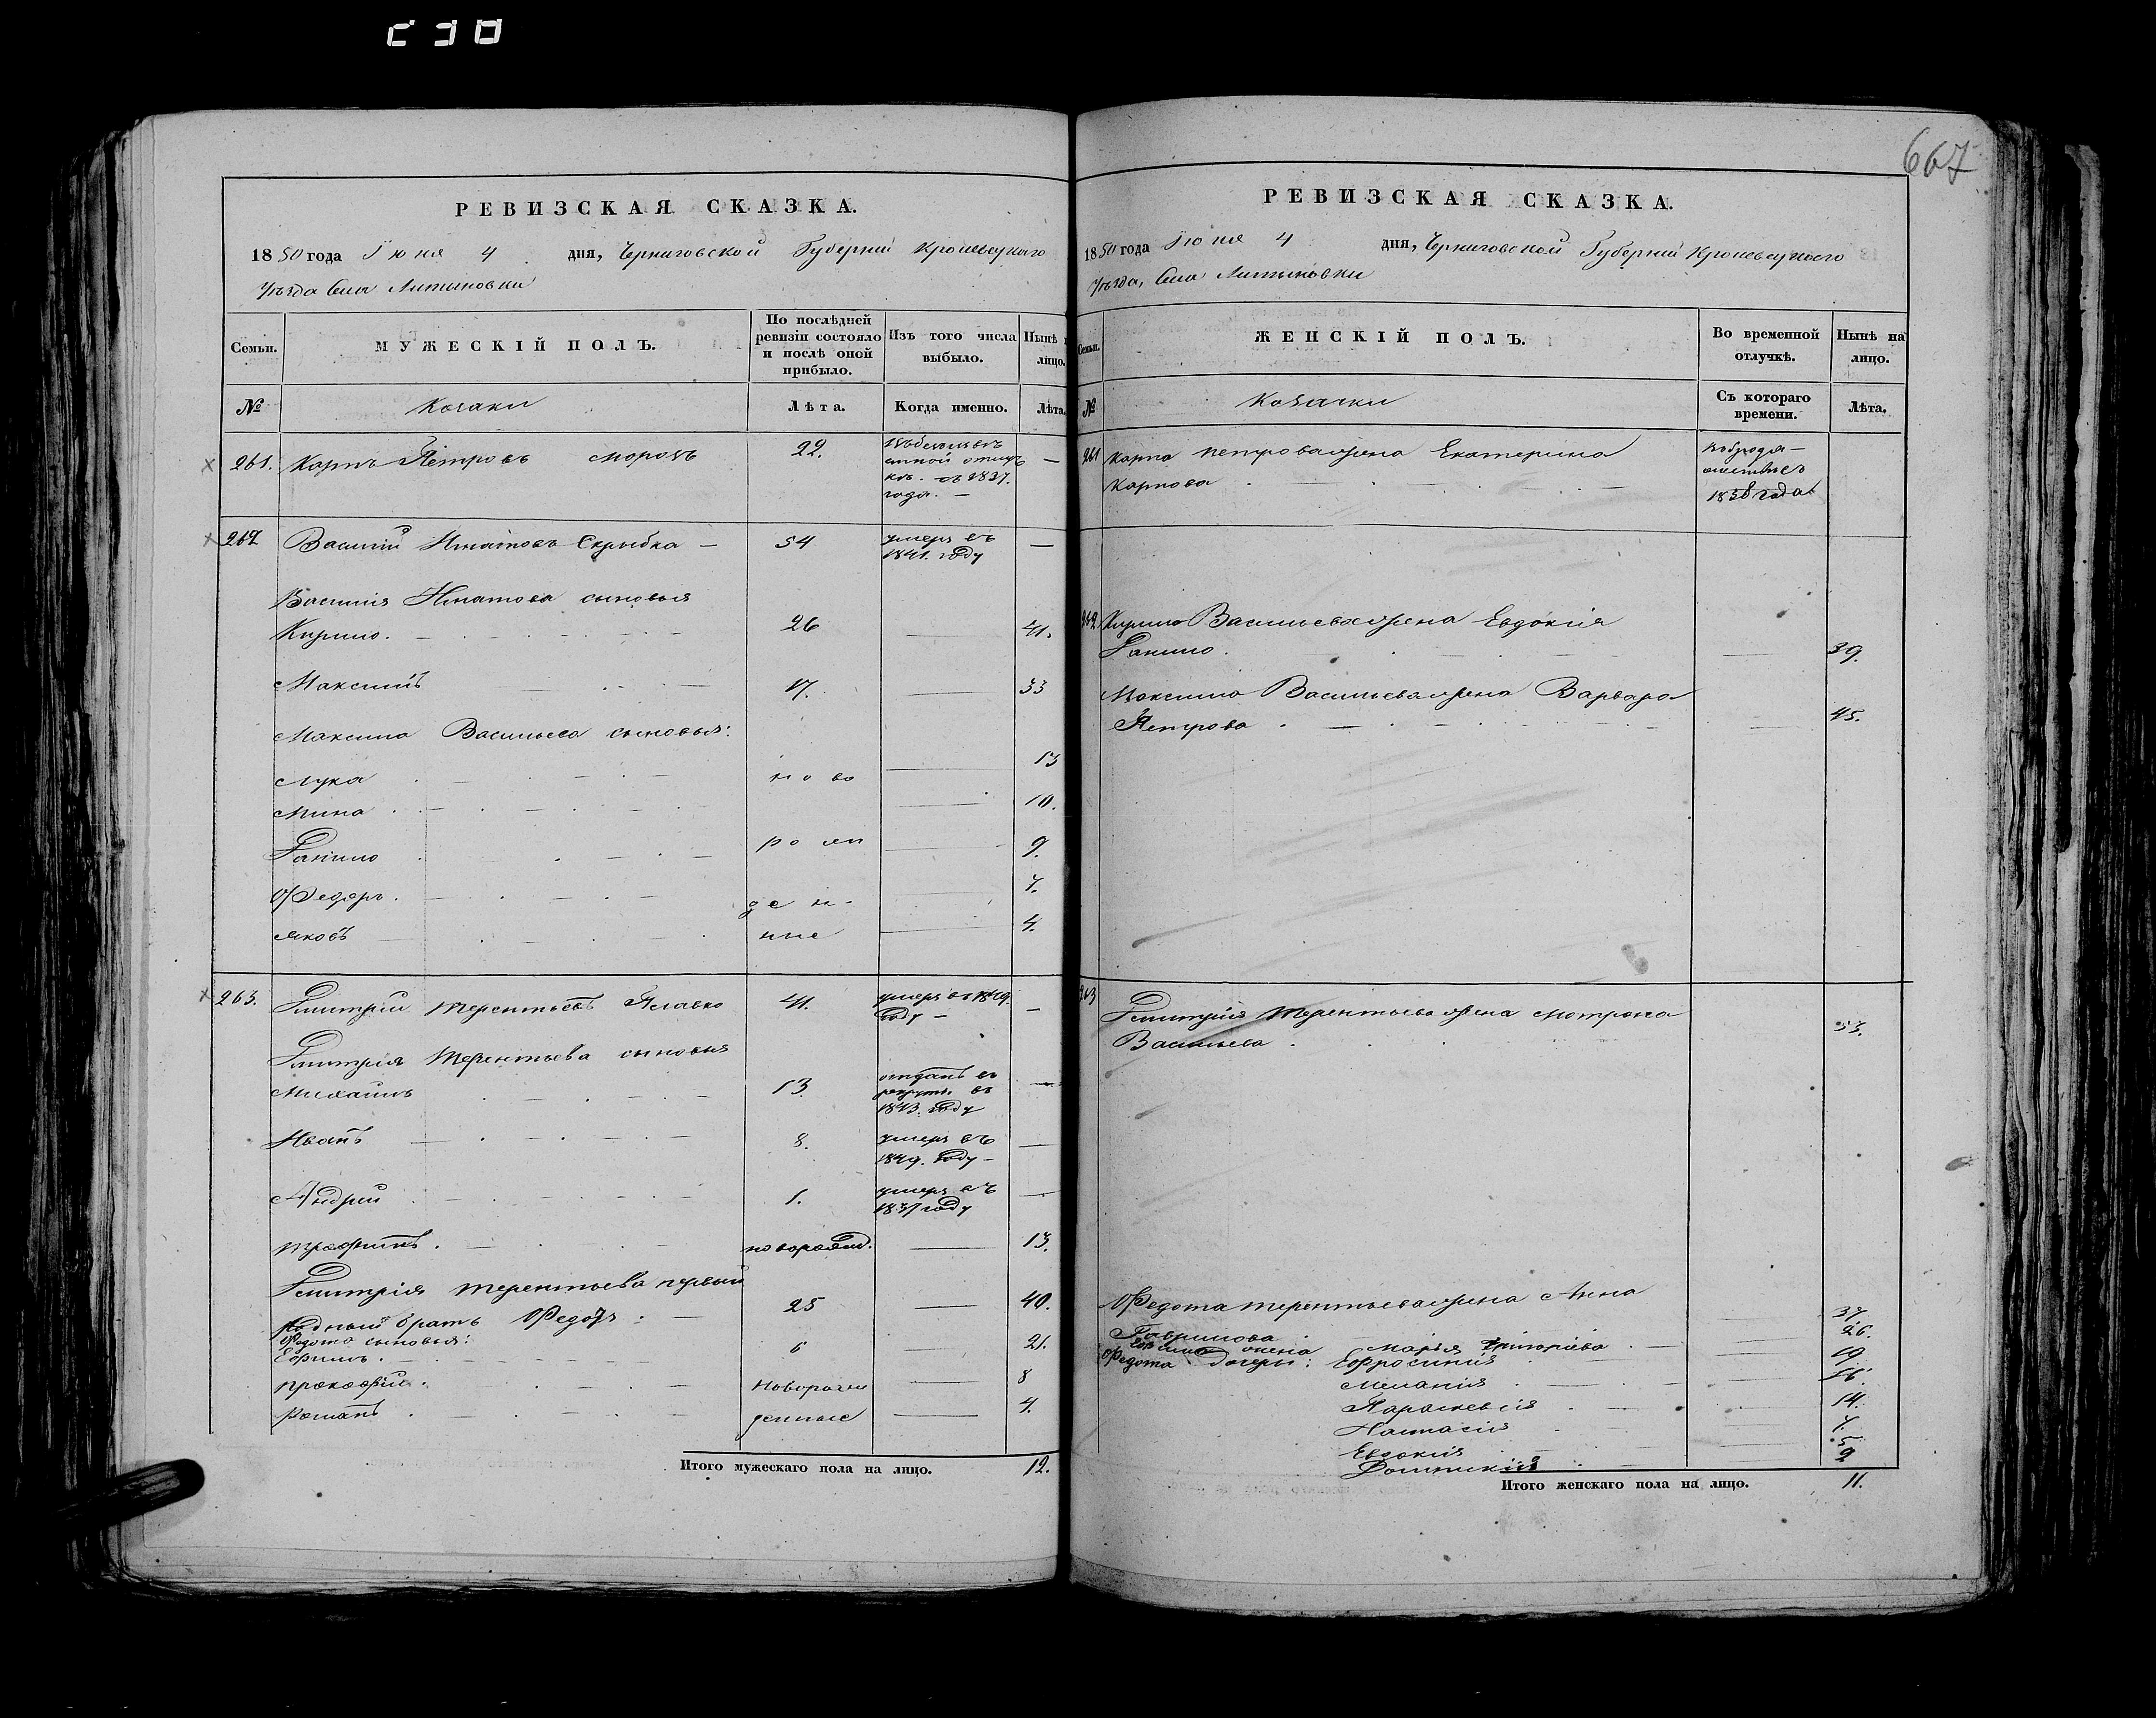 667
РЕВИЗСКАЯ СКАЗКА.
1850 года Іюня 4 дня, Черниговской Губерніи Кролевецкаго
Уѣзда Села Литвиновки
Семьи. МУЖЕСКІЙ ПОЛЪ. По послѣдней ревизіи состояло и послѣ оной прибыло. Изъ того числа выбыло. Нынѣ лицо.
№ Козаки Лѣта. Когда именно. Лѣта.
261. Карпъ Петровъ Морозъ 22. —
отлуч
кѣ. съ 1837.
года. —
262 Василій Игнатовъ Скрыбка — 54 умеръ въ —
1841. году
Василія Игнатова сыновья
Кирило. 26 — 41.
Максимъ 17. — 33
Максима Васильева сыновья:
Лука ново — 13
Мина — 10.
Данило рож — 9.
Федоръ. ден — 7.
Яковъ ные — 4.
263. Дмитрій Терентьевъ Главко 41. умеръ въ 1849. —
году —
Дмитрія Терентьева сыновья
Михаилъ 13. отданъ въ —
рекруты. въ
1843. году
Иванъ 8. умеръ въ —
1849. году —
Андрей 1. умеръ въ —
1837 году
Трофимъ. новорожд. — 13.
Дмитрія Терентьева первый
родный братъ Федотъ. — 25 — 40.
Федота сыновья:
Ефимъ. 6 — 21.
Прокофій. новорож — 8
Романъ денные — 4.
Итого мужескаго пола на лицо. 12.
РЕВИЗСКАЯ СКАЗКА.
1850 года Іюня 4 дня, Черниговской Губерніи Кролевецкаго
Уѣзда, Села Литвиновки
Семьи. ЖЕНСКІЙ ПОЛЪ. Во временной отлучкѣ. Нынѣ на лицо.
№ Козачки Съ котораго времени. Лѣта.
261 Карпа Петрова жена Екатерина
Карпова
1838 года
262. Кирила Васильева жена Евдокія
Данило. — 39.
Максима Васильева жена Варвара
Петрова — 45.
263 Дмитрія Терентьева жена Мотрона
Васильева 53.
Федота Терентьева жена Анна
Гаврилова — 37.
Ефима жена Марья Григорієва — 26.
Федота дочери: Ефросинія 19.
Меланія 16.
Параскевія 14.
Настасія 7.
Евдокія 5.
Домникія 2
Итого женскаго пола на лицо. 11.